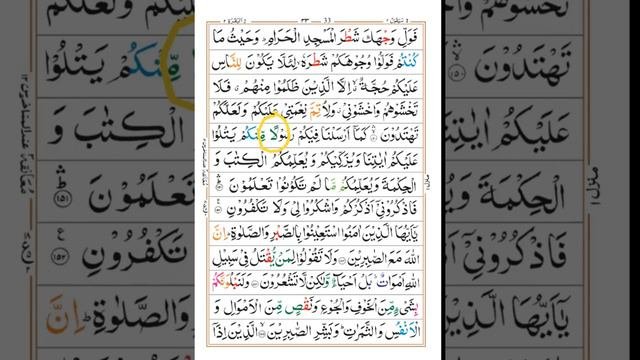 ٣٣ 33
فَوَلِّ وَجْهَكَ شَطْرَ الْمَسْجِدِ الْحَرَامِ ؕ وَحَيْثُ مَا
كُنْتُمْ فَوَلُّوْا وُجُوْهَكُمْ شَطْرَهٗ ۙ لِئَلَّا يَكُوْنَ لِلنَّاسِ
عَلَيْكُمْ حُجَّةٌ ۙ اِلَّا الَّذِيْنَ ظَلَمُوْا مِنْهُمْ ۗ فَلَا
تَخْشَوْهُمْ وَاخْشَوْنِيْ ۗ وَلِاُتِمَّ نِعْمَتِيْ عَلَيْكُمْ وَلَعَلَّكُمْ
تَهْتَدُوْنَ ۙ كَمَاۤ اَرْسَلْنَا فِيْكُمْ رَسُوْلًا مِّنْكُمْ يَتْلُوْا
عَلَيْكُمْ اٰيٰتِنَا وَيُزَكِّيْكُمْ وَ يُعَلِّمُكُمُ الْكِتٰبَ وَ
الْحِكْمَةَ وَ يُعَلِّمُكُمْ مَّا لَمْ تَكُوْنُوْا تَعْلَمُوْنَ
فَاذْكُرُوْنِيْۤ اَذْكُرْكُمْ وَاشْكُرُوْا لِيْ وَلَا تَكْفُرُوْنِ
يٰۤاَيُّهَا الَّذِيْنَ اٰمَنُوا اسْتَعِيْنُوْا بِالصَّبْرِ وَالصَّلٰوةِ ؕ اِنَّ
اللّٰهَ مَعَ الصّٰبِرِيْنَ وَلَا تَقُوْلُوْا لِمَنْ يُّقْتَلُ فِيْ سَبِيْلِ
اللّٰهِ اَمْوَاتٌ ؕ بَلْ اَحْيَآءٌ وَّلٰكِنْ لَّا تَشْعُرُوْنَ وَلَنَبْلُوَنَّكُمْ
بِشَيْءٍ مِّنَ الْخَوْفِ وَالْجُوْعِ وَنَقْصٍ مِّنَ الْاَمْوَالِ وَ
الْاَنْفُسِ وَالثَّمَرٰتِ ؕ وَبَشِّرِ الصّٰبِرِيْنَ الَّذِيْنَ اِذَاۤ